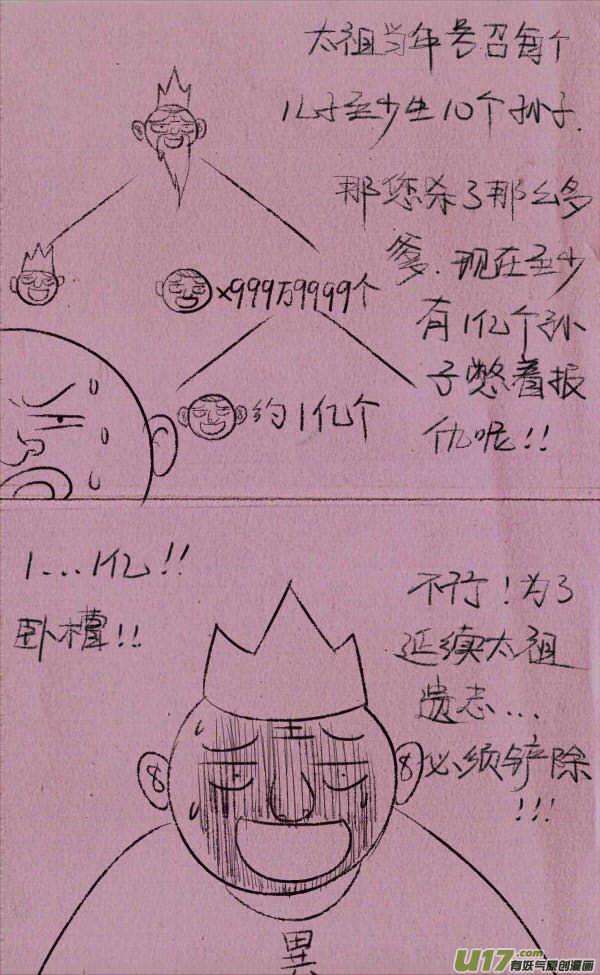 太祖当年号召每个
儿子至少生10个孙子.
那您杀了那么多
爹.现在至少
有1亿个孙
子憋着报
仇呢!!
×999万9999个
约1亿个
1...1亿!!
卧槽!!
不行!为了
延续太祖
遗志...
必须铲除
!!!
王
8
8
異
U17.com
有妖气原创漫画